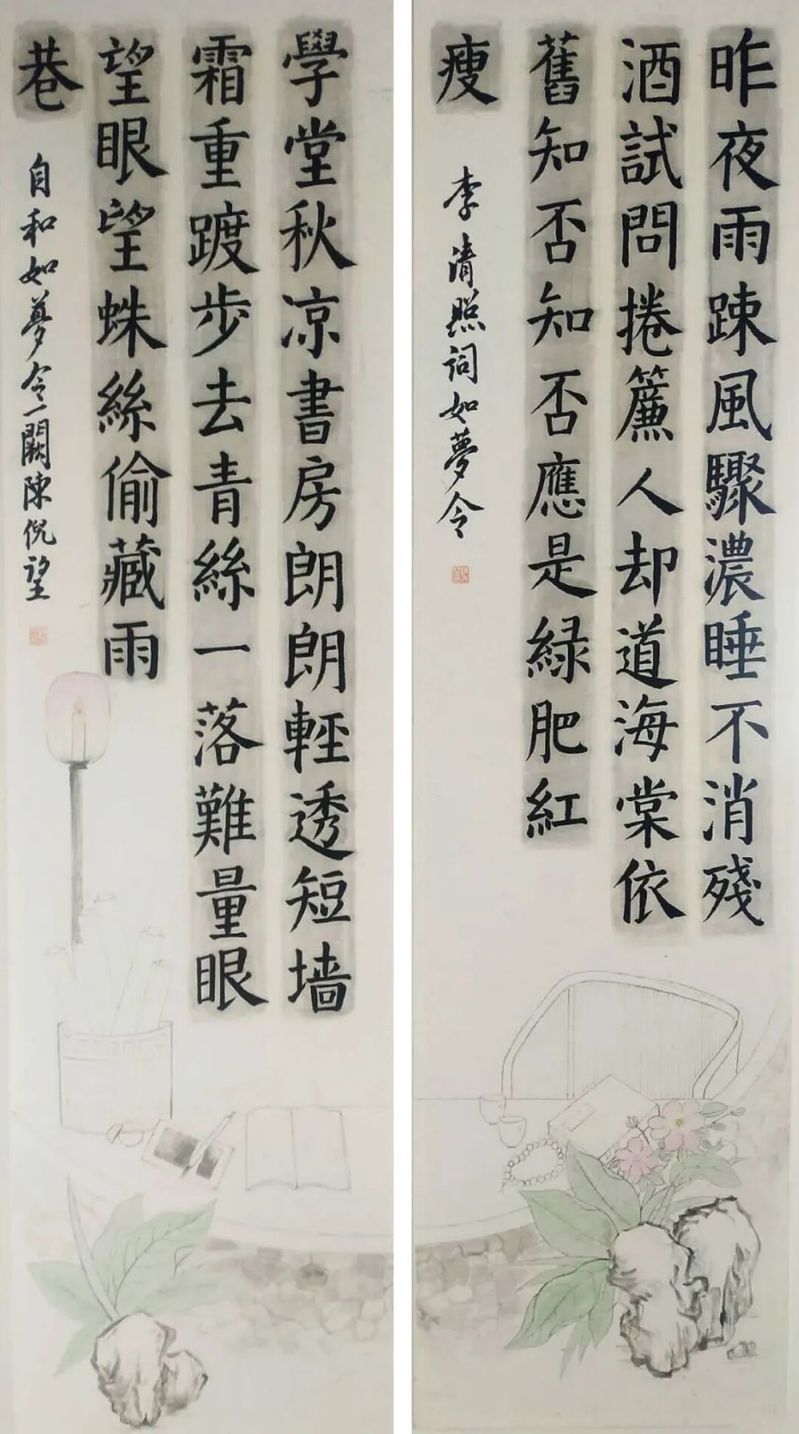 昨夜雨踈風驟濃睡不消殘
酒試問捲簾人却道海棠依
舊知否知否應是緑肥紅
瘦
李清照詞如夢令
學堂秋凉書房朗朗輕透短墙
霜重踱步去青絲一落難量眼
望眼望蛛絲偷藏雨
巷
自和如夢令一闕陳倪望